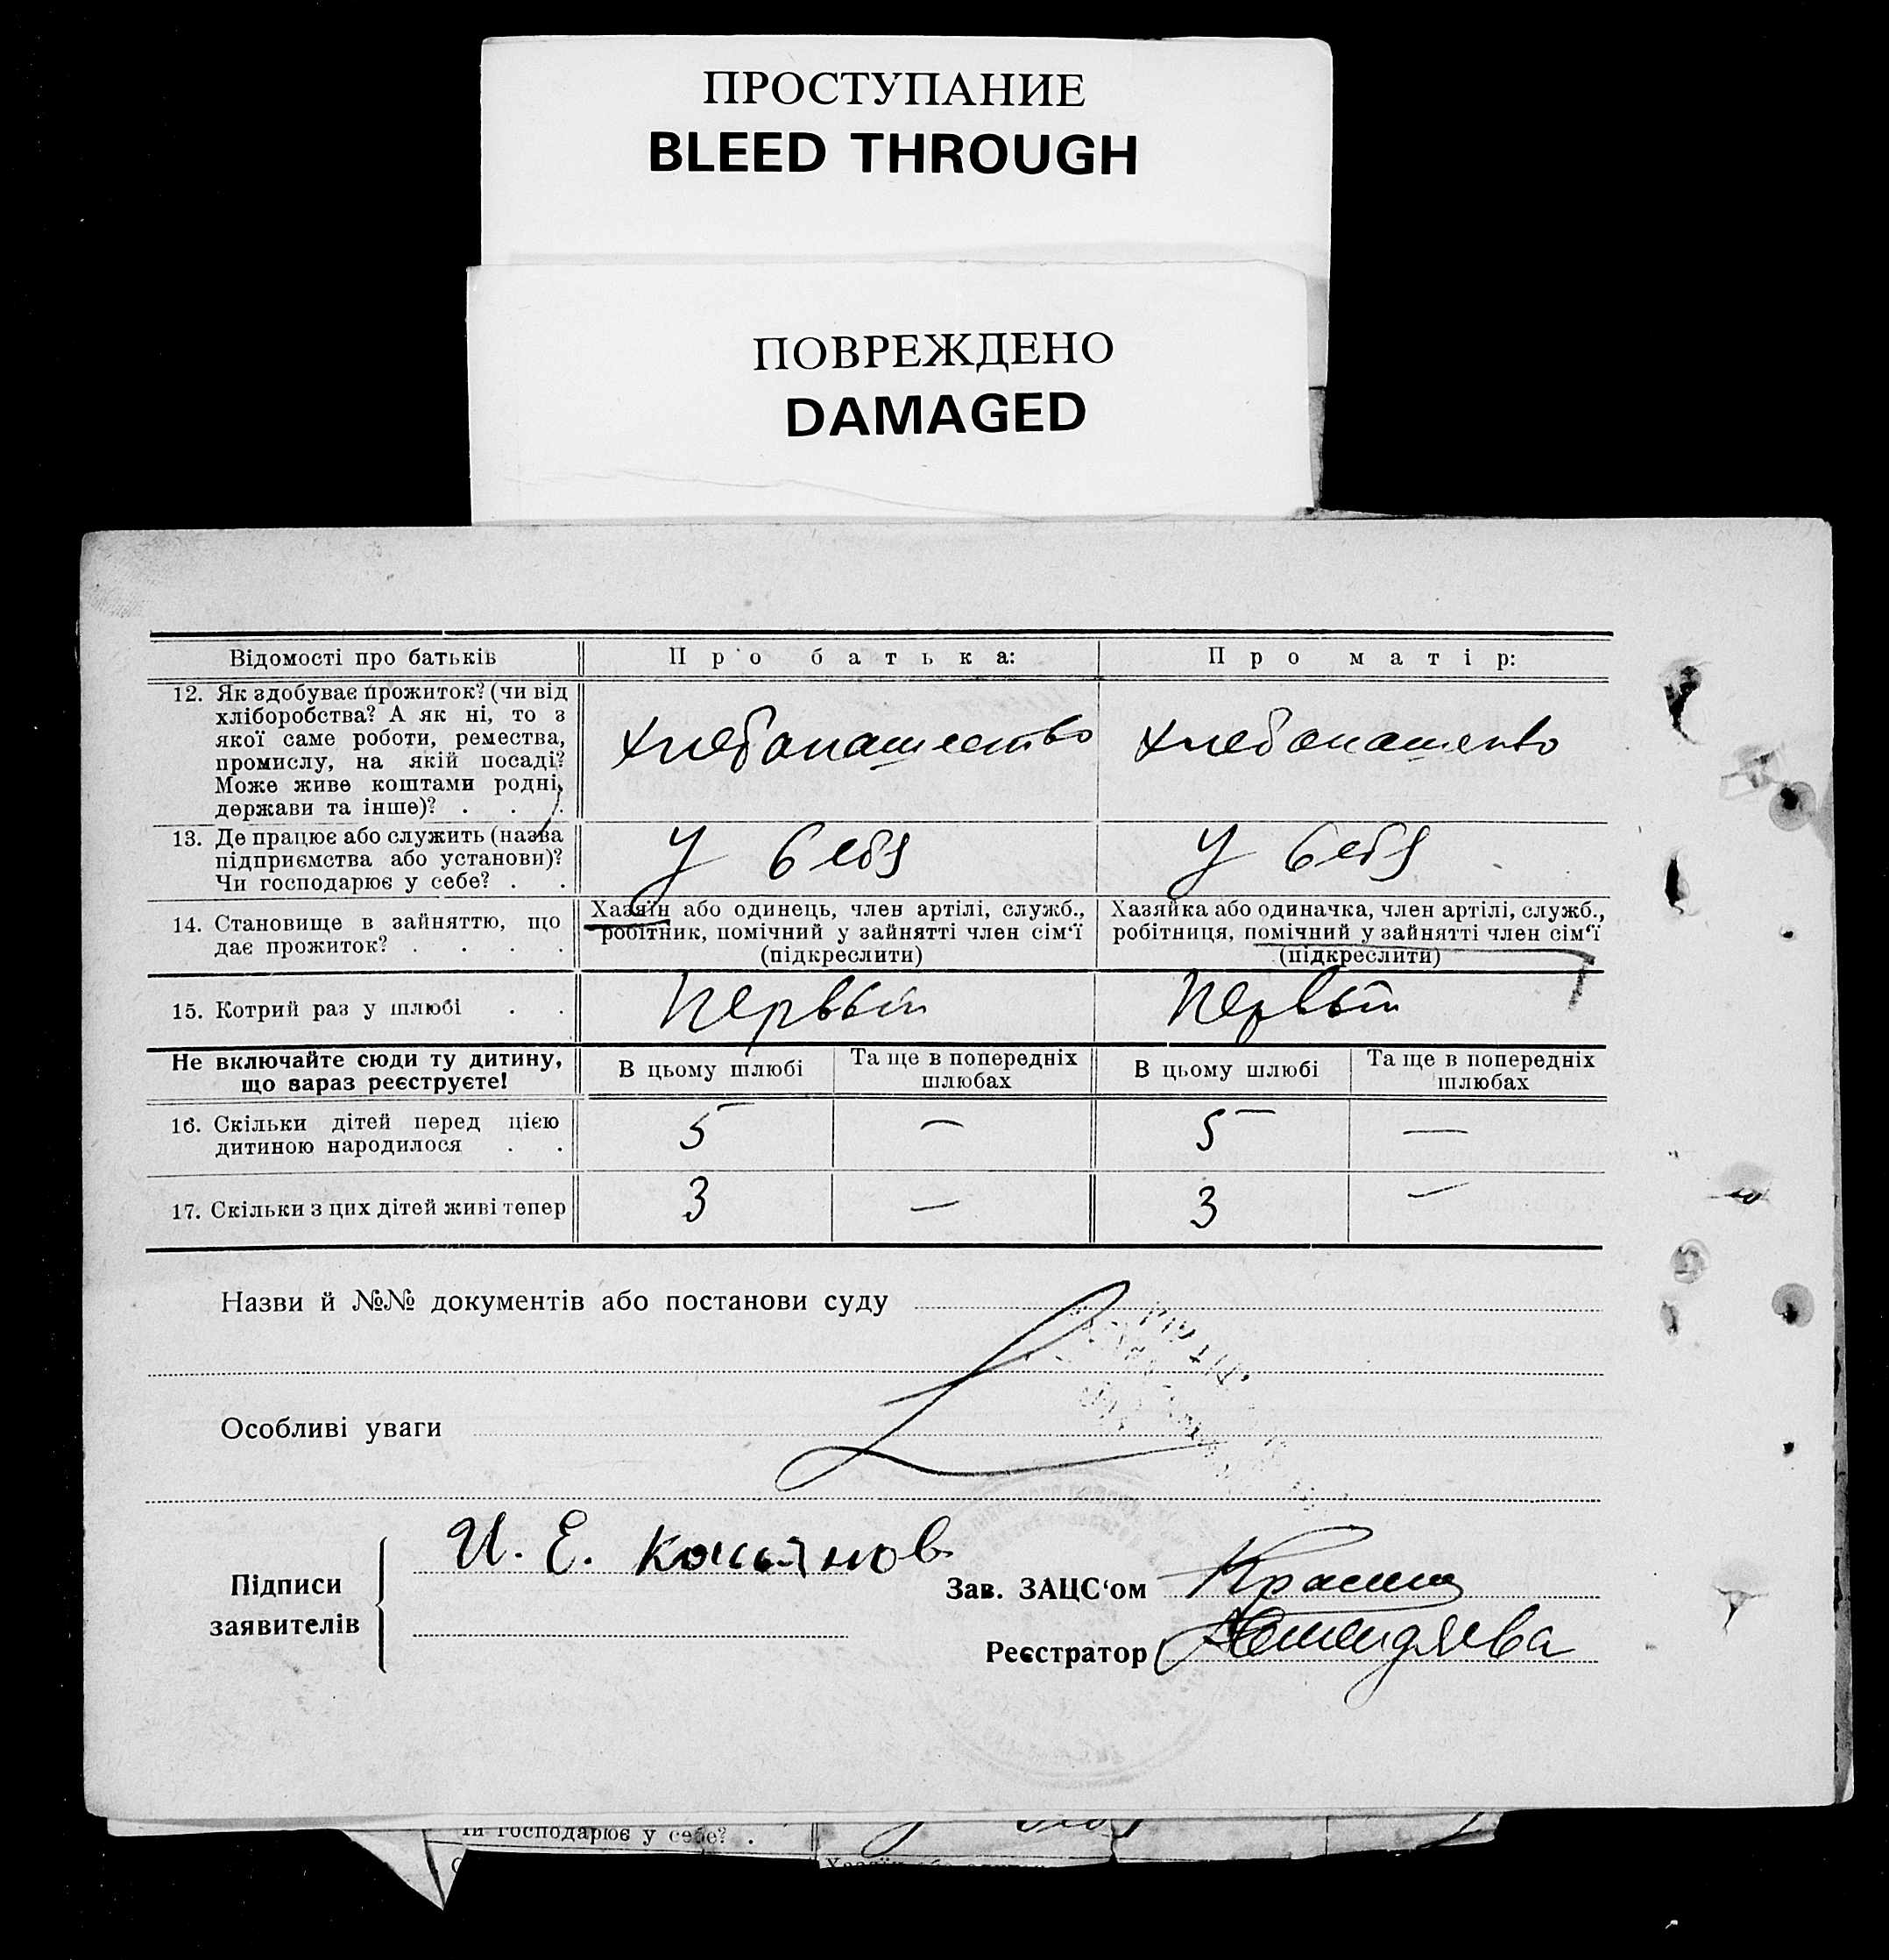 ПРОСТУПАНИЕ
BLEED THROUGH
ПОВРЕЖДЕНО
DAMAGED
Відомості про батьків
Про батька:
Про матір:
12. Як здобуває прожиток? (чи від
хліборобства? А як ні, то з
якої саме роботи, ремества,
промислу, на якій посаді?
Може живе коштами родні,
держави та інше)? . . .
хлебопашество
хлебопашенво
13. Де працює або служить (назва
підприємства або установи)?
Чи господарює у себе? . .
У себя
У себя
14. Становище в зайняттю, що
дає прожиток? . . . .
Хазяїн або одинець, член артілі, служб.,
робітник, помічний у зайнятті член сім‘ї
(підкреслити)
Хазяйка або одиначка, член артілі, служб.,
робітниця, помічний у зайнятті член сім‘ї
(підкреслити)
15. Котрий раз у шлюбі . .
Первый
Первый
Не включайте сюди ту дитину,
що зараз реєструєте!
В цьому шлюбі
Та ще в попередніх
шлюбах
В цьому шлюбі
Та ще в попередніх
шлюбах
16. Скільки дітей перед цією
дитиною народилося . .
5 — 5 —
17. Скільки з цих дітей живі тепер
3 — 3 —
Назви й №№ документів або постанови суду
Особливі уваги
Підписи
заявителів
И. Е. Касьянов
Зав. ЗАЦС‘ом
Реєстратор
чи господарює у себе? .